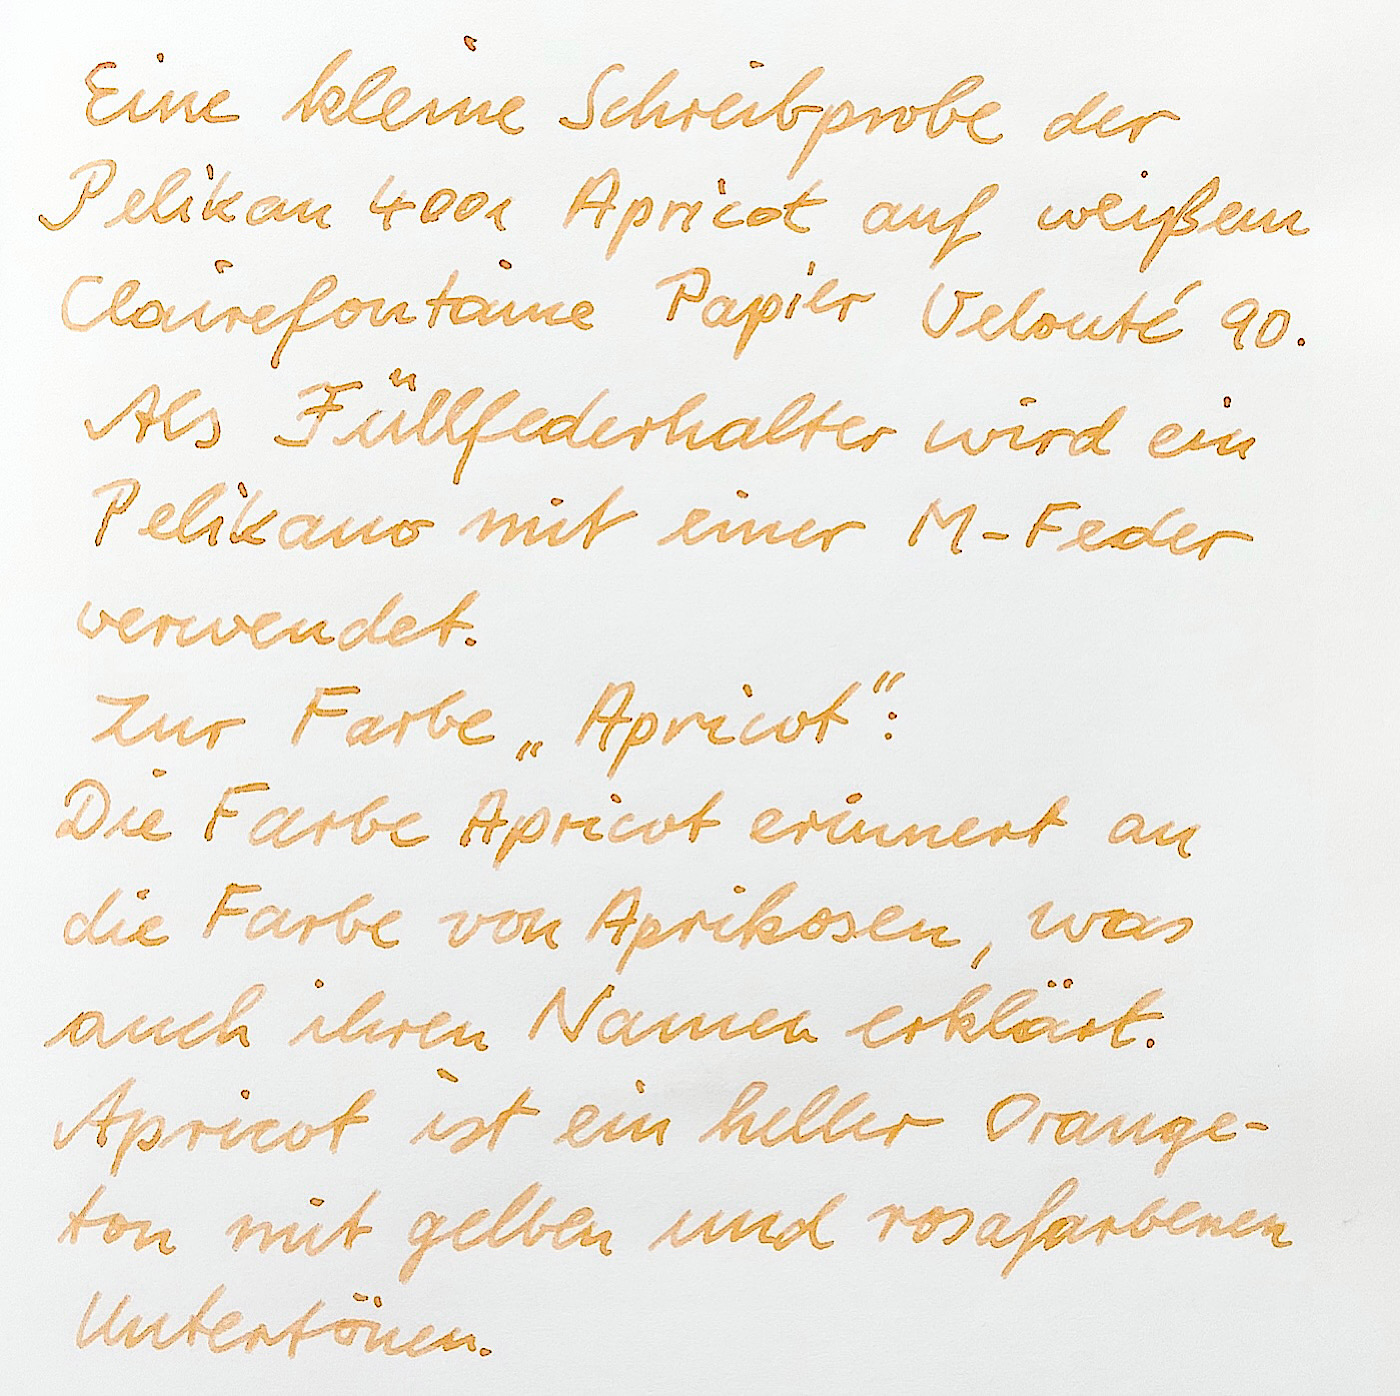 Eine kleine Schreibprobe der
Pelikan 4001 Apricot auf weißem
Clairefontaine Papier Velouté 90.
Als Füllfederhalter wird ein
Pelikano mit einer M-Feder
verwendet.
Zur Farbe „Apricot“:
Die Farbe Apricot erinnert an
die Farbe von Aprikosen, was
auch ihren Namen erklärt.
Apricot ist ein heller Orange-
ton mit gelben und rosafarbenen
Untertönen.